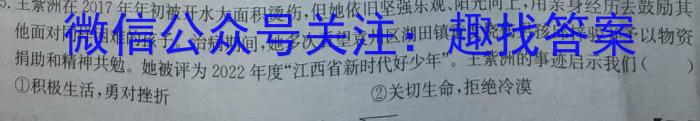 5. 王紫洲在2017年年初被开水大面积烫伤,但她依旧坚强乐观、阳光向上,用亲身经历去鼓励其
他面对 困难的孩子。治病期间,她多次 望 区湖田镇 以物资
微信公众号关注:趣找答案
捐助和精神共勉。她被评为2022年度“江西省新时代好少年”。王紫洲的事迹启示我们( )
①积极生活,勇对挫折 ②关切生命,拒绝冷漠